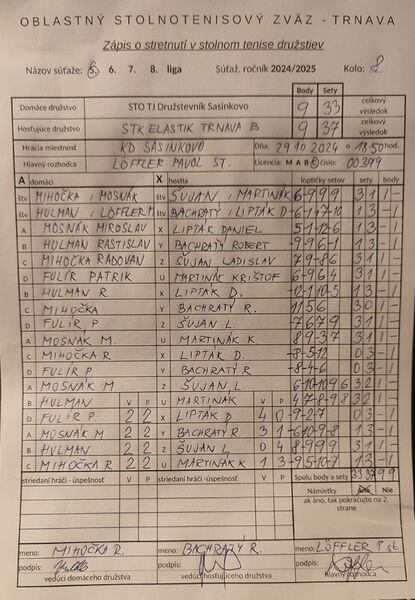 OBLASTNÝ STOLNOTENISOVÝ ZVÄZ - TRNAVA
Zápis o stretnutí v stolnom tenise družstiev
Názov súťaže: 5. 6. 7. 8. liga Súťaž. ročník 2024/2025 Kolo: 8
Body Sety
Domáce družstvo STO TJ Družstevník Sasinkovo 9 33 celkový výsledok
Hosťujúce družstvo STK ELASTIK TRNAVA B 9 37 celkový výsledok
Hracia miestnosť KD SASINKOVO Dňa: 29.10.2024 o 18:50 hod.
Hlavný rozhodca LÖFFLER PAVOL ST. Licencia: M A B C číslo: 00399
A domáci X hostia loptičky setov sety body
štv MIHOČKA, MOSNÁK štv ŠUJAN, MARTINÁK 6-999 3 1 1 -
štv HULMAN, LÖFFLER M štv BACHRATÝ, LIPTÁK D 1 3 - 1
A MOSNÁK MIROSLAV X LIPTÁK DANIEL 1 3 - 1
B HULMAN RASTISLAV Y BACHRATÝ ROBERT -9-96-1 1 3 - 1
C MIHOČKA RADOVAN Z ŠUJAN LADISLAV 79-86 3 1 1 -
D FULÍR PATRIK U MARTINÁK KRIŠTOF 6-964 3 1 1 -
B HULMAN R. X LIPTÁK D. 1 3 - 1
C MIHOČKA Y BACHRATÝ R. 1156 3 0 1 -
D FULÍR P Z ŠUJAN L. -7679 3 1 1 -
A MOSNÁK M. U MARTINÁK K. 89-37 3 1 1 -
C MIHOČKA R X LIPTÁK D. -8-5-12 0 3 - 1
D FULÍR P. Y BACHRATÝ R -8-4-6 0 3 - 1
A MOSNÁK M Z ŠUJAN L. 3 2 1 -
B HULMAN V P U MARTINÁK V P 3 2 1 -
D FULÍR P. 2 2 X LIPTÁK D 4 0 -9-2-7 0 3 - 1
A MOSNÁK M 2 2 Y BACHRATÝ R. 3 1 -610-9-8 1 3 - 1
B HULMAN 2 2 Z ŠUJAN L 0 4 8-999 3 1 1 -
C MIHOČKA R 2 2 U MARTINÁK K 1 3 -95-10-7 1 3 - 1
striedaní hráči - úspešnosť V P striedaní hráči - úspešnosť V P Spolu body a sety 33 37 9 9
Námietky Áno Nie
ak áno, tak pokračujte na 2. strane
meno: MIHOČKA R. meno: BACHRATÝ R. meno: LÖFFLER P st.
podpis: podpis: podpis:
vedúci domáceho družstva vedúci hosťujúceho družstva hlavný rozhodca